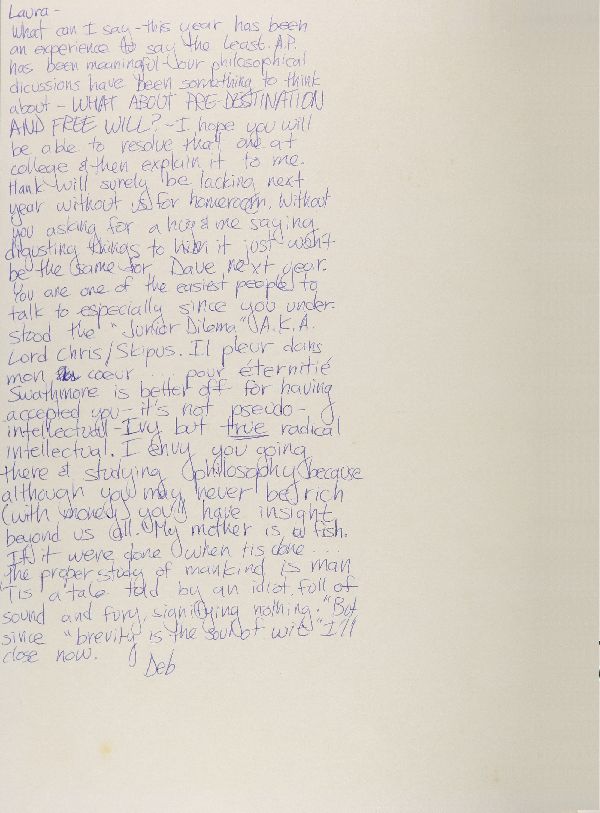 Laura -
What can I say - this year has been
an experience to say the least. A.P.
has been meaningful - our philosophical
dicussions have been something to think
about - WHAT ABOUT PRE-DESTINATION
AND FREE WILL? - I hope you will
be able to resolve that one at
college & then explain it to me.
Hank will surely be lacking next
year without us for homeroom. Without
you asking for a hug & me saying
digusting things to him it just won't
be the same for Dave next year.
You are one of the easiest people to
talk to especially since you under-
stood the "Junior Dilema" A.K.A.
Lord Chris/Skipus. Il pleur dans
mon coeur .... pour éternitié
Swathmore is better off for having
accepted you - it's not pseudo-
intellectual - Ivy but true radical
intellectual. I envy you going
there & studying philosophy because
although you may never be rich
(with money) you'll have insight
beyond us all. "My mother is a fish.
If it were done when tis done ...
the proper study of mankind is man
'Tis a tale told by an idiot, full of
sound and fury, signifying nothing." But
since "brevity is the soul of wit" I'll
close now.
Deb